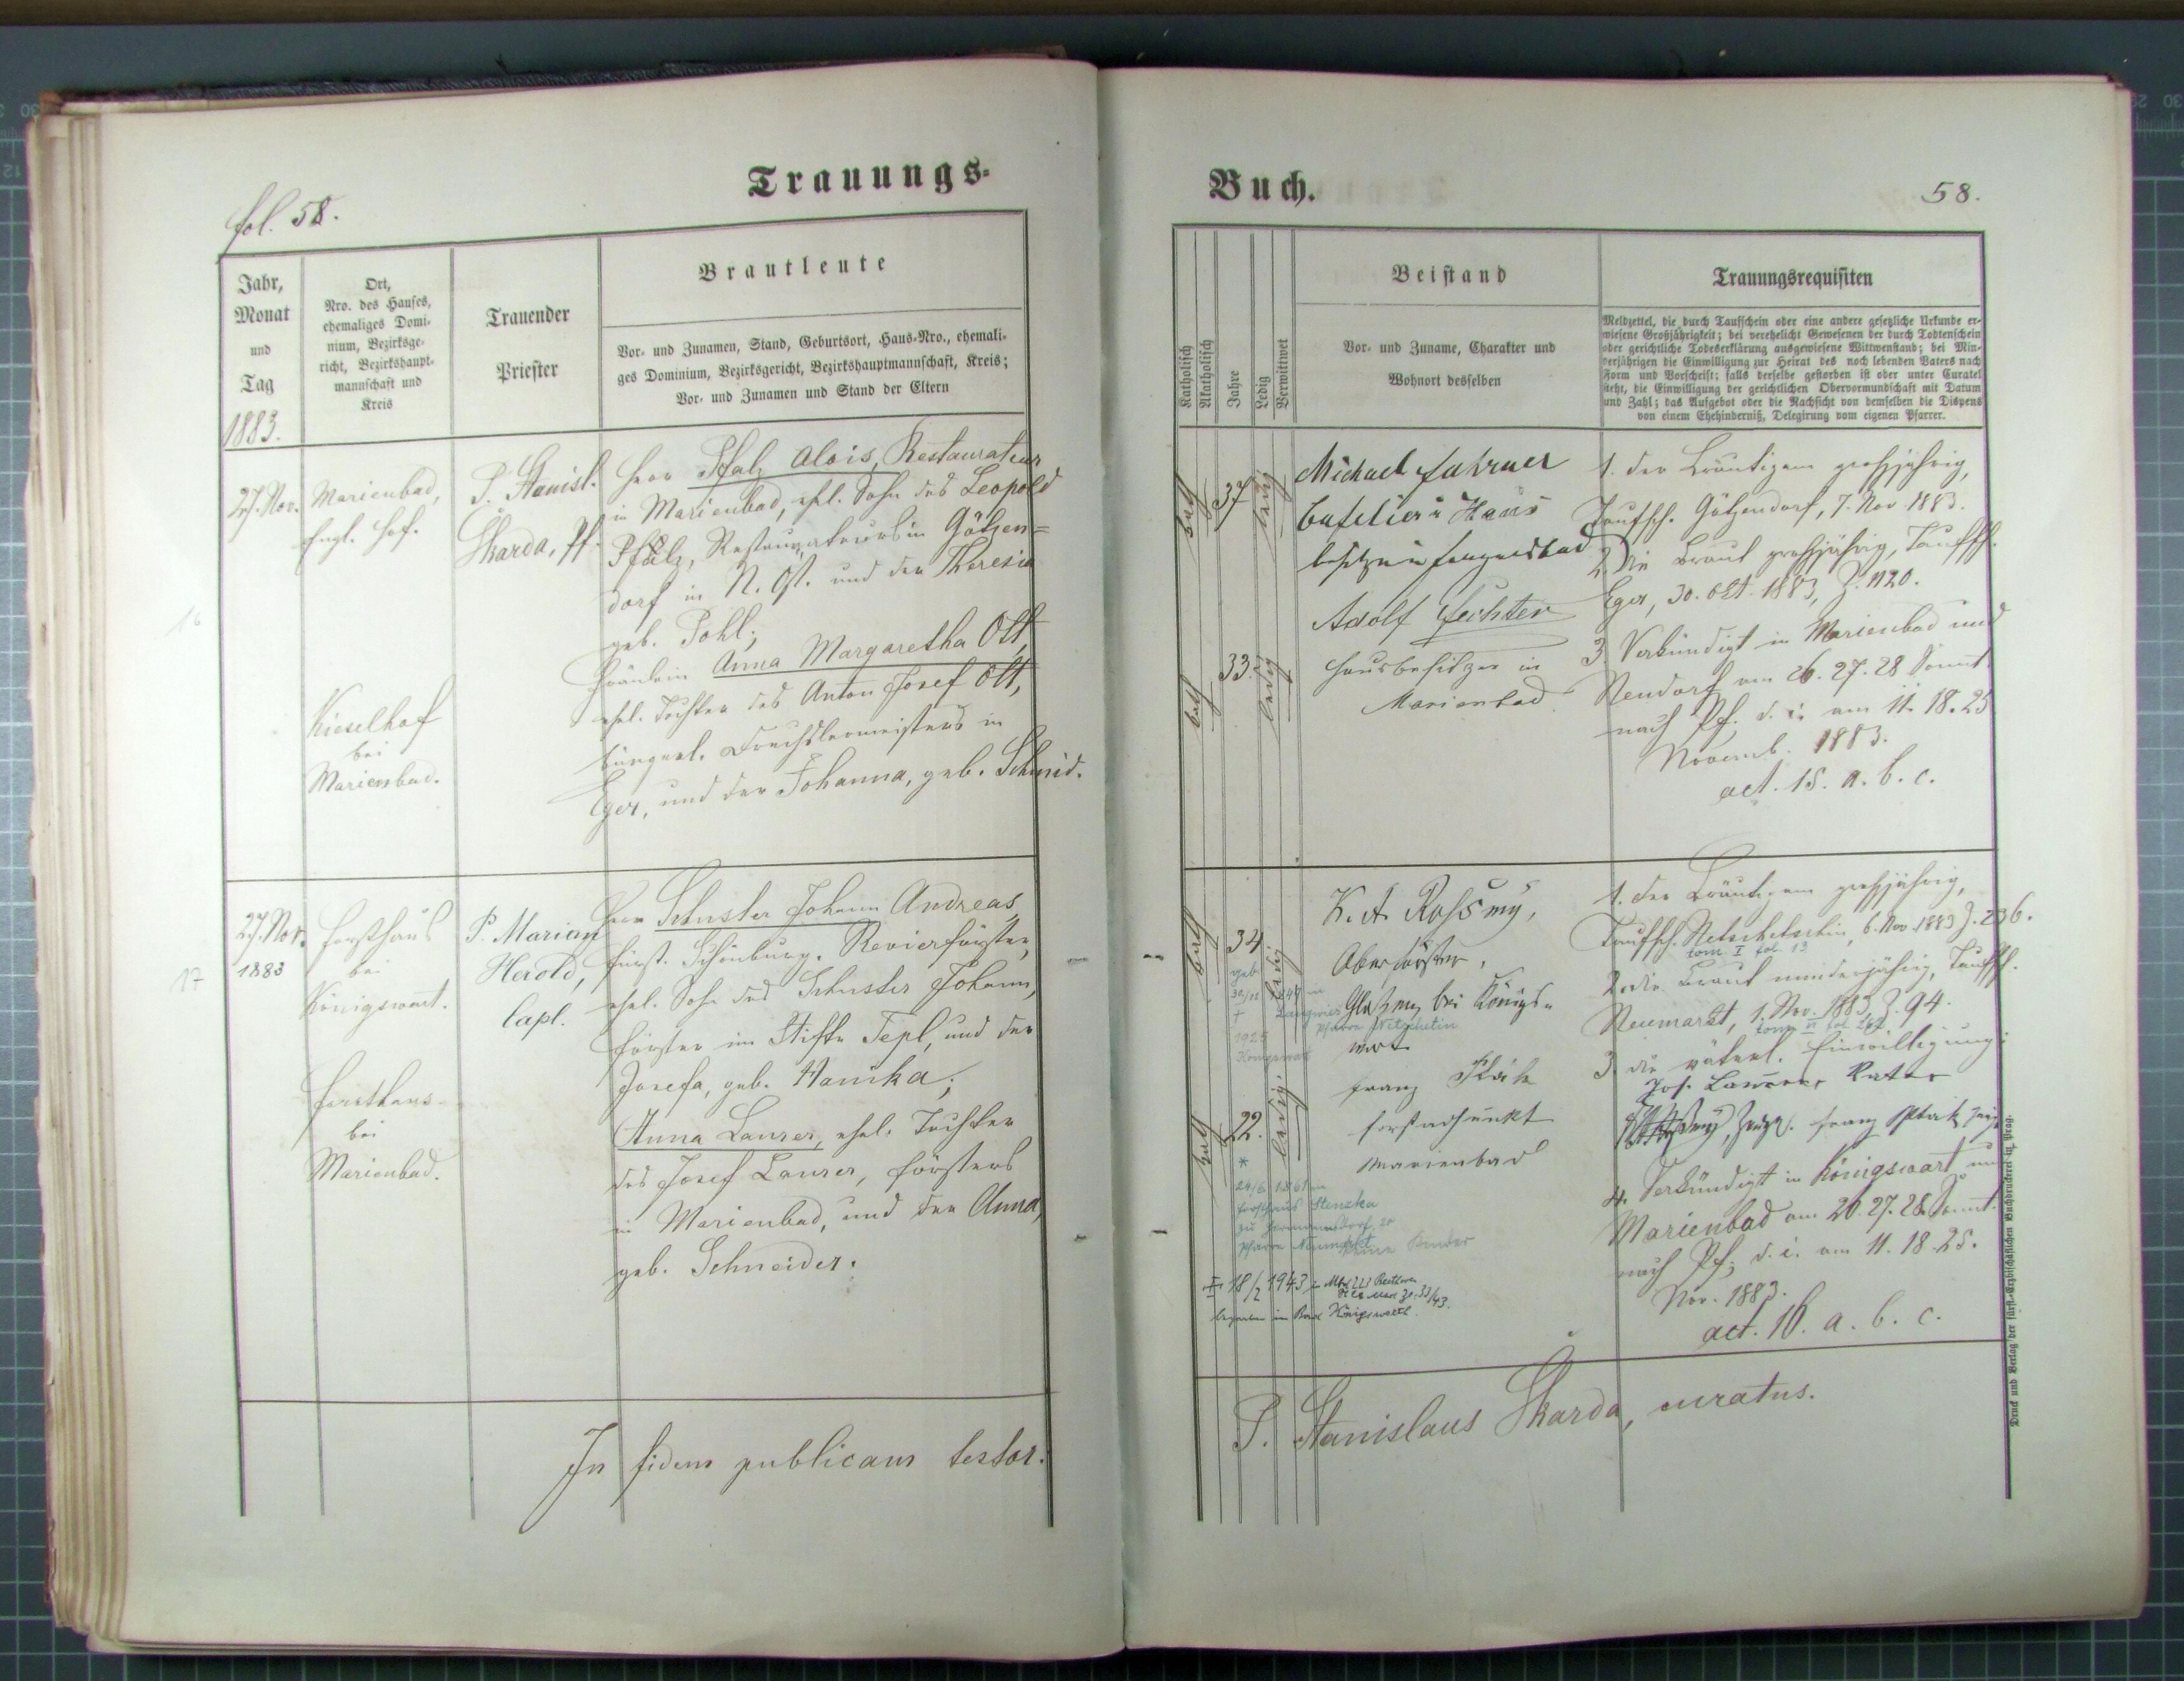 fol. 58.
Trauungs-
Jahr,
Monat
und
Tag
1883.
Ort,
Nro. des Hauses,
ehemaliges Domi-
nium, Bezirksge-
richt, Bezirkshaupt-
mannschaft und
Kreis
Trauender
Priester
Brautleute
Vor- und Zunamen, Stand, Geburtsort, Haus-Nro., ehemali-
ges Dominium, Bezirksgericht, Bezirkshauptmannschaft, Kreis;
Vor- und Zunamen und Stand der Eltern
16
27. Nov.
Marienbad,
Engl. Hof.
Kieselhof
bei
Marienbad.
P. Stanisl.
Skarda, Pf.
Herr Pfalz Alois, Restaurateur
in Marienbad, ehl. Sohn des Leopold
Pfalz, Restaurateurs in Götzen=
dorf in N. Öst. und der Theresia
geb. Pohl;
Fräulein Anna Margaretha Ott,
ehel. Tochter des Anton Josef Ott,
bürgerl. Drechslermeisters in
Eger, und der Johanna, geb. Schmid.
17
27. Nov.
1883
Forsthaus
bei
Königswart.
Forsthaus
bei
Marienbad.
P. Marian
Herold,
Capl.
Herr Schuster Johann Andreas,
fürst. Schönburg. Revierförster,
ehel. Sohn des Schuster Johann,
Förster im Stifte Tepl, und der
Josefa, geb. Hanika;
Anna Laurer, ehel. Tochter
des Josef Laurer, Försters
in Marienbad, und der Anna,
geb. Schneider.
In fidem publicam testor:
Buch.
58.
Katholisch
Akatholisch
Jahre
Ledig
Verwittwet
Beistand
Vor- und Zuname, Charakter und
Wohnort desselben
Trauungsrequisiten
Meldzettel, die durch Taufschein oder eine andere gesetzliche Urkunde er-
wiesene Großjährigkeit; bei verehelicht Gewesenen der durch Todtenschein
oder gerichtliche Todeserklärung ausgewiesene Wittwenstand; bei Min-
derjährigen die Einwilligung zur Heirat des noch lebenden Vaters nach
Form und Vorschrift; falls derselbe gestorben ist oder unter Curatel
steht, die Einwilligung der gerichtlichen Obervormundschaft mit Datum
und Zahl; das Aufgebot oder die Nachsicht von demselben die Dispens
von einem Ehehinderniß, Delegirung vom eigenen Pfarrer.
kath
37
ledig
kath
33.
ledig
Michael
Cafetier u Haus
besitzer in
Adolf Fechter
Hausbesitzer in
Marienbad.
1. der Bräutigam großjährig,
Taufsch. Götzendorf, 7. Nov 1883.
2. Die Braut großjährig, Taufsch.
Eger, 30. Okt. 1883, Z. 1120.
3. Verkündigt in Marienbad und
Neudorf am 26. 27. 28 Sonnt.
nach Pf. d. i. am 11. 18. 25
Novemb. 1883.
act. 15. a. b. c.
kath
34
ledig
geb.
Pfarre Netschetin
1925
Königswart
kath
22.
ledig.
*
24/6 1861 in
Forsthaus
Pfarre Neumarkt
18/2 1943
K. A. Rossmy,
Oberförster,
Glatzen bei Königs=
wart
Franz
Forstadjunkt
Marienbad
1. der Bräutigam großjährig,
Taufsch. Netschetin, 6. Nov 1883 Z. 236.
tom. I fol. 13
2. die Braut minderjährig, Taufsch.
Neumarkt, 1. Nov. 1883, Z. 94.
3. die väterl. Einwilligung:
Jos. Laurer, Vater
4. Verkündigt in Königswart und
Marienbad am 26. 27. 28. Sonnt.
nach Pf; d. i. am 11. 18. 25.
Nov. 1883.
act. 16. a. b. c.
P. Stanislaus Skarda, curatus.
Druck und Verlag der fürst-Erzbischöflichen Buchdruckerei in Prag.